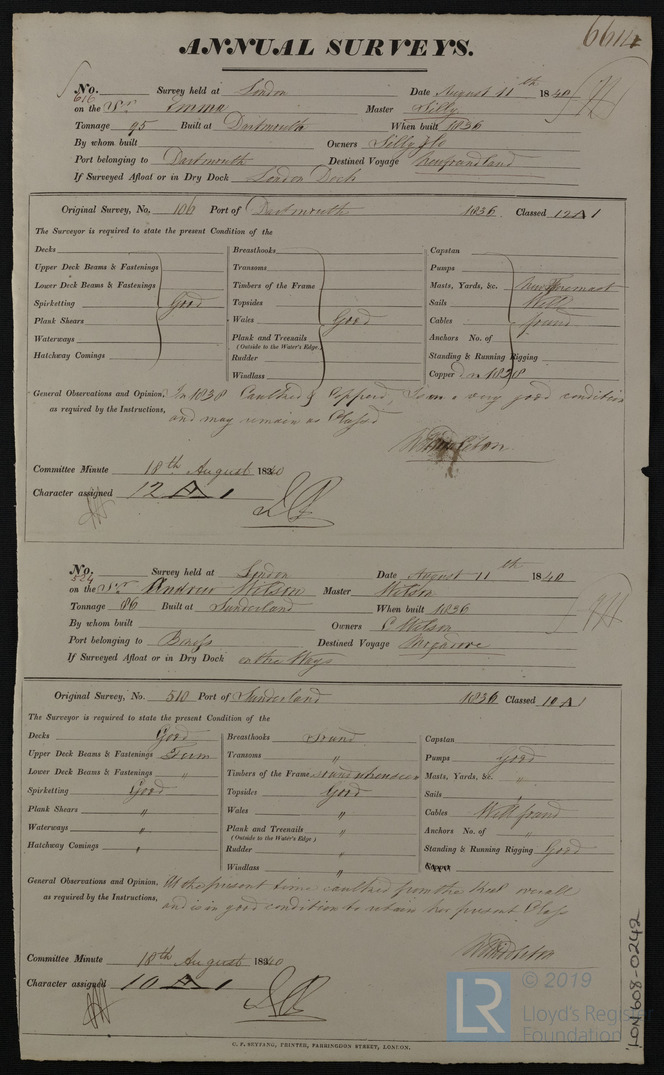 6614
ANNUAL SURVEYS.
No. 616 Survey held at London Date August 11th 1840
on the Sr Emma Master Silly
Tonnage 95 Built at Dartmouth When built 1836
By whom built Owners Silly & Co
Port belonging to Dartmouth Destined Voyage Newfoundland
If Surveyed Afloat or in Dry Dock London Dock
Original Survey, No. 106 Port of Dartmouth 1836 Classed 12 A 1
The Surveyor is required to state the present Condition of the
Decks Breasthooks Capstan
Upper Deck Beams & Fastenings Transoms Pumps
Lower Deck Beams & Fastenings Timbers of the Frame Masts, Yards, &c. New Foremast
Spirketting Good Topsides Sails Well
Plank Shears Wales Good Cables found
Waterways Plank and Treenails Anchors No. of
(Outside to the Water's Edge.)
Hatchway Comings Rudder Standing & Running Rigging
Windlass Copper Do in 1838
General Observations and Opinion, In 1838 Caulked & Coppered, is in a very good condition
as required by the Instructions, and may remain as Classed
Middleton
Committee Minute 18th August 1840
Character assigned 12 A 1
No. 554 Survey held at London Date August 11th 1840
on the Sr Andrew Wilson Master Wilson
Tonnage 86 Built at Sunderland When built 1836
By whom built Owners C Wilson
Port belonging to Destined Voyage
If Surveyed Afloat or in Dry Dock on the Ways
Original Survey, No. 510 Port of Sunderland 1836 Classed 10 A 1
The Surveyor is required to state the present Condition of the
Decks Good Breasthooks Sound Capstan
Upper Deck Beams & Fastenings Firm Transoms " Pumps good
Lower Deck Beams & Fastenings " Timbers of the Frame Masts, Yards, &c. "
Spirketting Good Topsides Good Sails "
Plank Shears " Wales " Cables Well found
Waterways " Plank and Treenails " Anchors No. of "
(Outside to the Water's Edge)
Hatchway Comings " Rudder " Standing & Running Rigging Good
Windlass "
General Observations and Opinion, At the present time caulked from the keel overall
as required by the Instructions, and is in good condition to retain her present Class
Middleton
Committee Minute 18th August 1840
Character assigned 10 A 1
G. F. BEYFANG, PRINTER, FARRINGDON STREET, LONDON.
LON 608-0242
LR © 2019
Lloyd's Register
Foundation